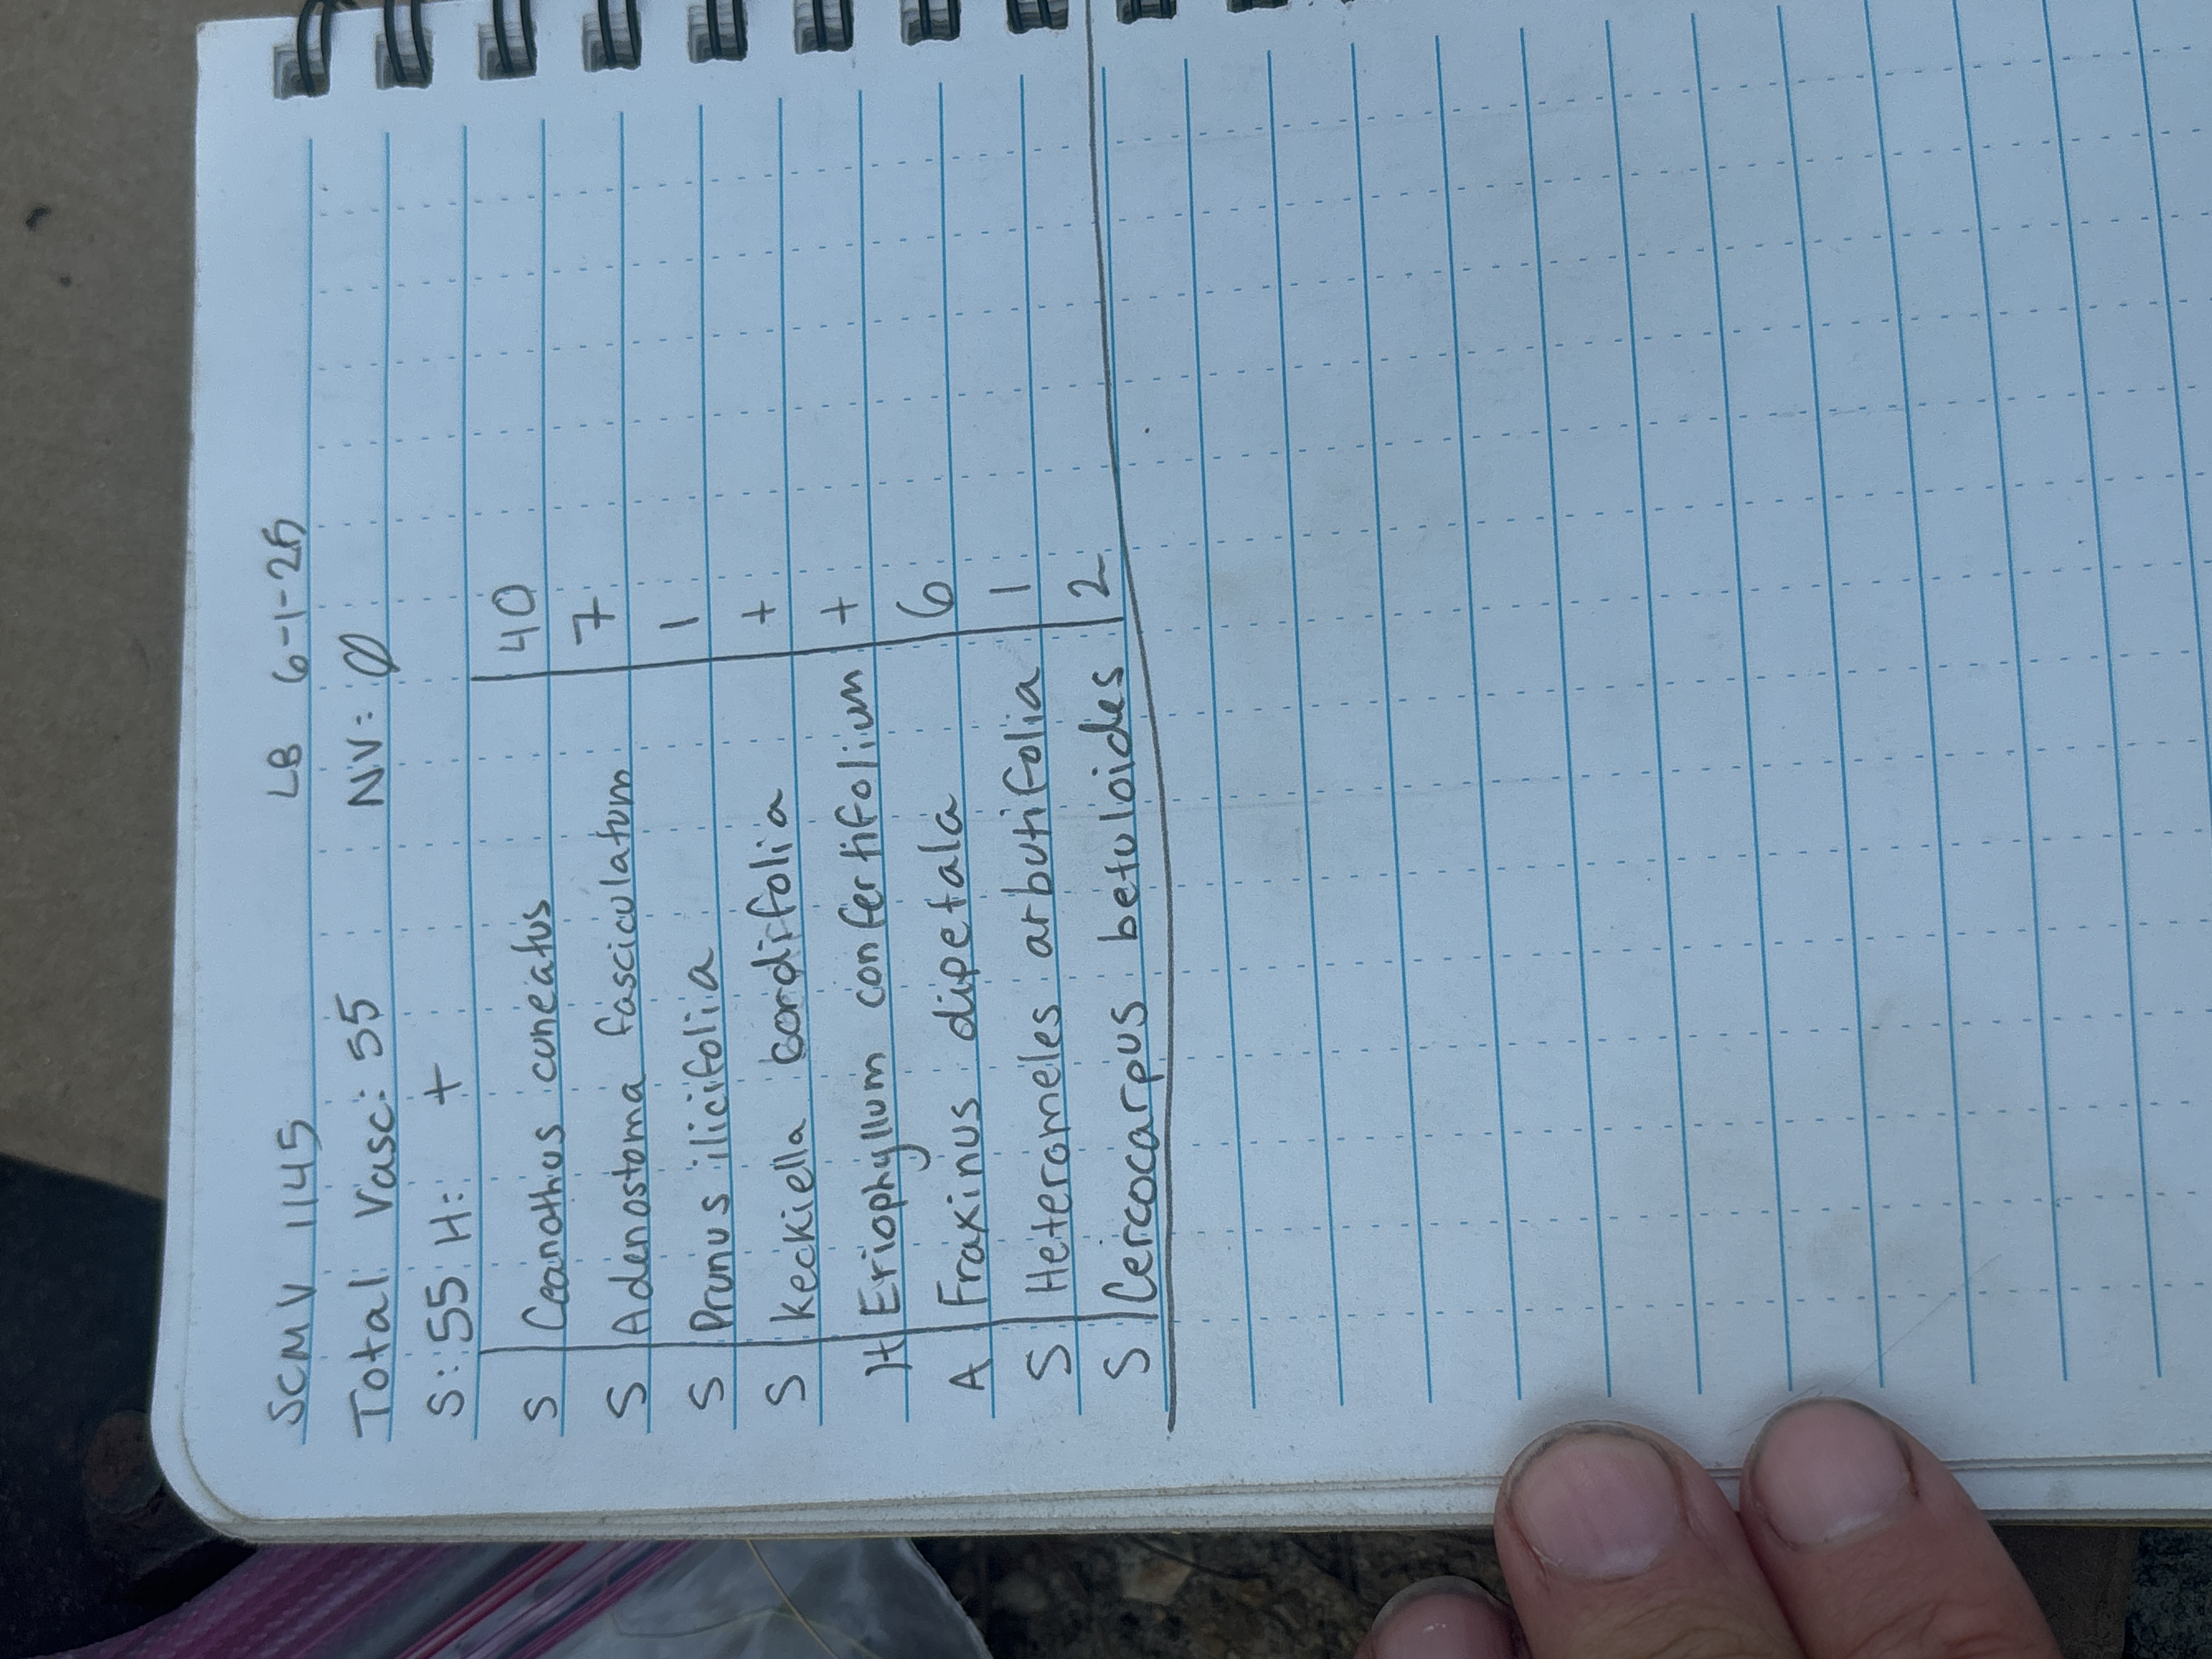 SCMV 1145 LB 6-1-25
Total Vasc: 55 NV: Ø
S: 55 H: +
S Ceanothus cuneatus 40
S Adenostoma fasciculatum 7
S Prunus ilicifolia 1
S Keckiella cordifolia +
H Eriophyllum confertifolium +
A Fraxinus dipetala 6
S Heteromeles arbutifolia 1
S Cercocarpus betuloides 2